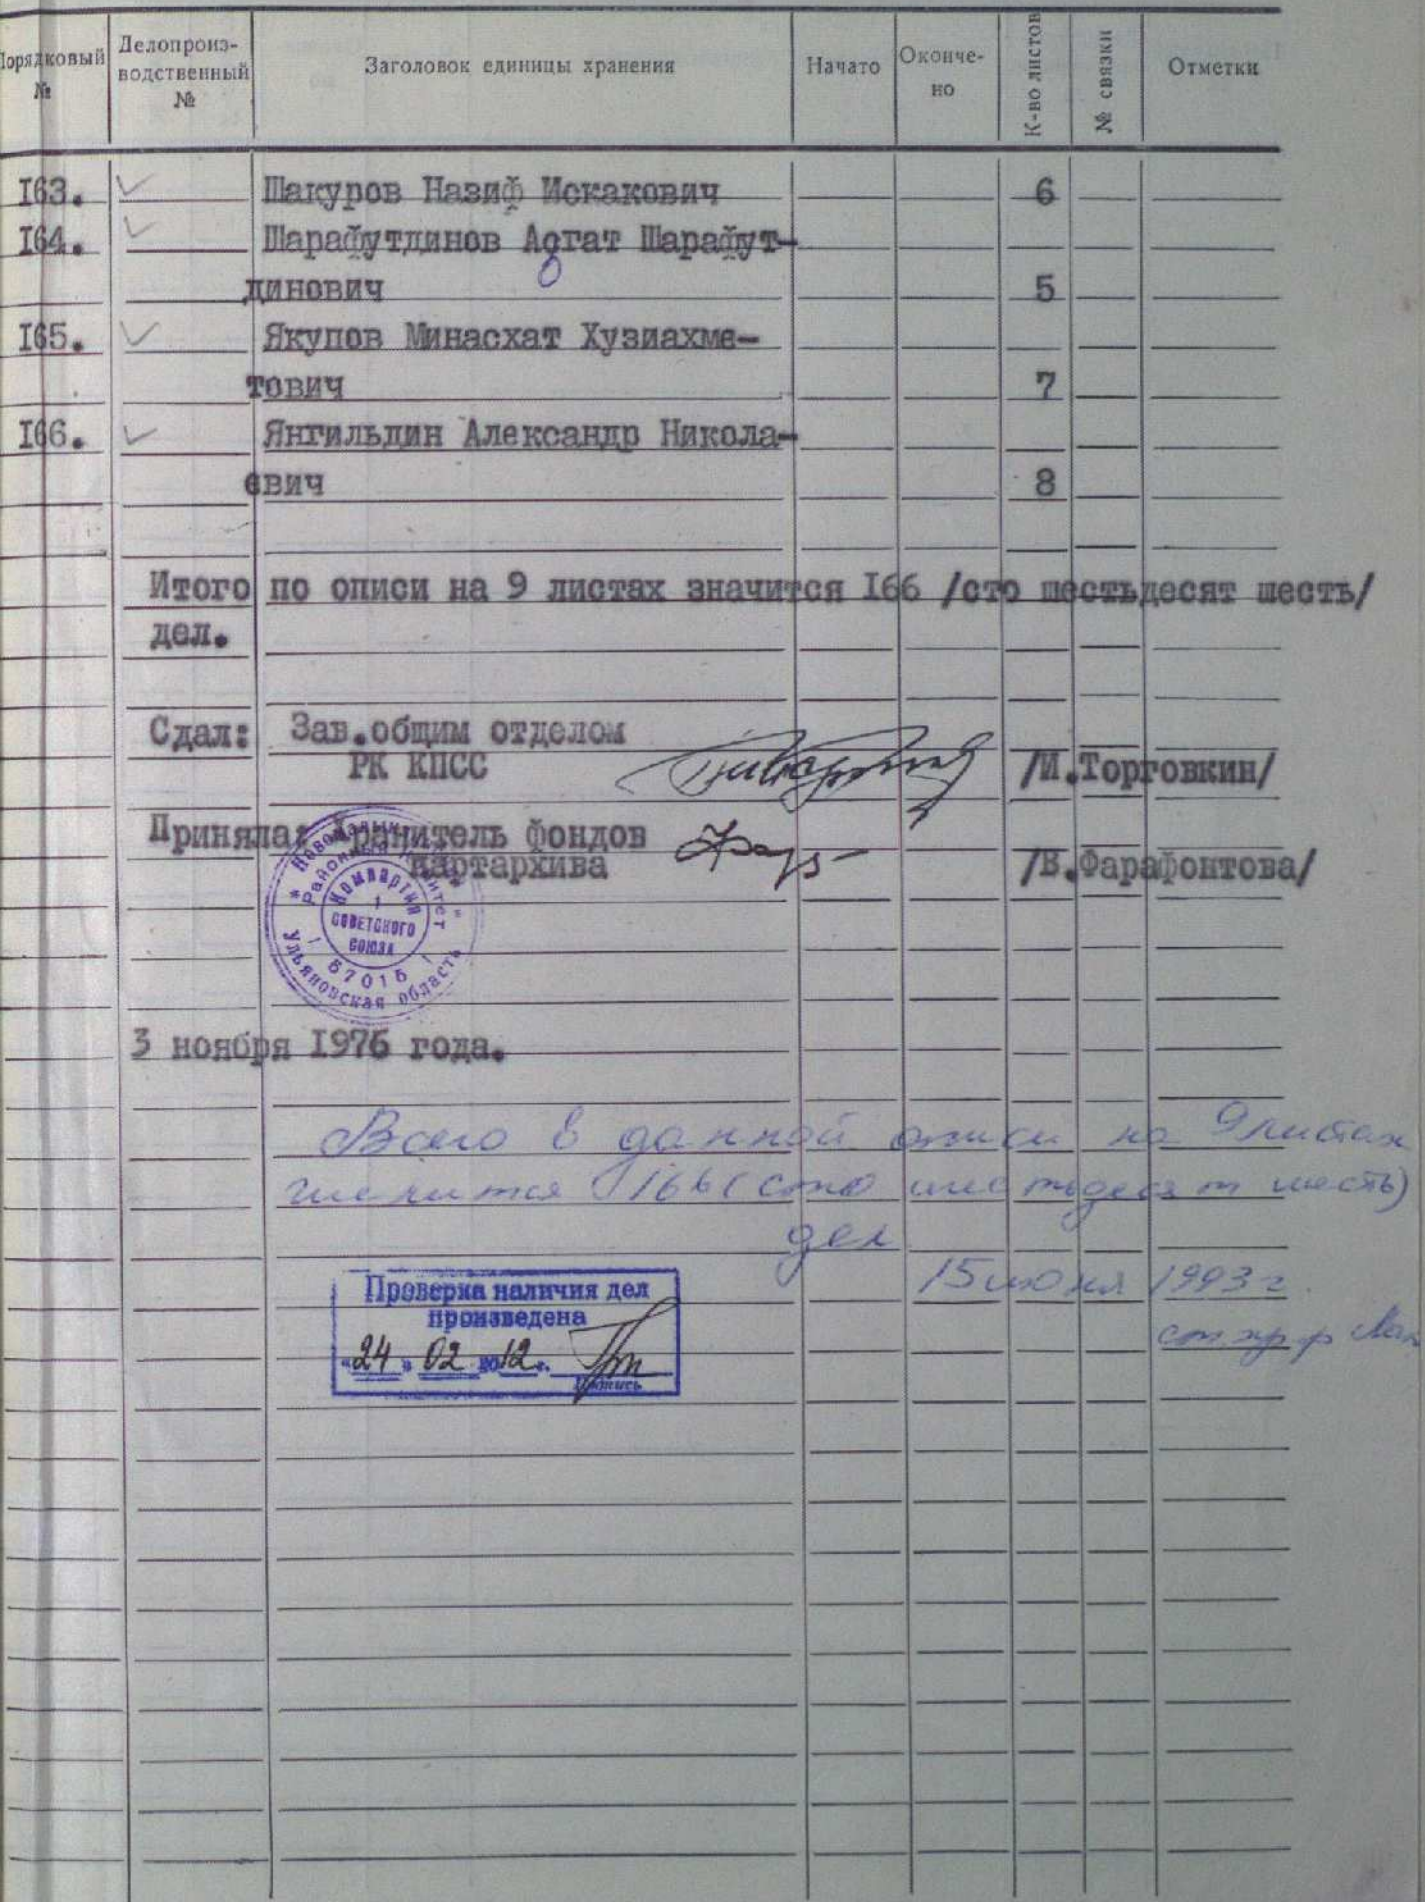 Порядковый № Делопроиз-водственный № Заголовок единицы хранения Начато Окончe-но К-во листов № связки Отметки
I63. Шакуров Назиф Искакович 6
I64. Шарафутдинов Асгат Шарафут-
динович 5
I65. Якупов Минасхат Хузиахме-
тович 7
I66. Янгильдин Александр Никола-
евич 8
Итого по описи на 9 листах значится I66 /сто шестьдесят шесть/
дел.
Сдал: Зав.общим отделом
РК КПСС /И.Торговкин/
Приняла: Хранитель фондов
партархива /В.Фарафонтова/
Районный комитет
Компартия
1
СОВЕТСКОГО
СОЮЗА
Ульяновская область
3 ноября I976 года.
Всего в данной описи на 9 листах
числится 166 (сто шестьдесят шесть)
дел
15 июня 1993 г.
Проверка наличия дел
произведена
"24" 02 2012 г.
Подпись